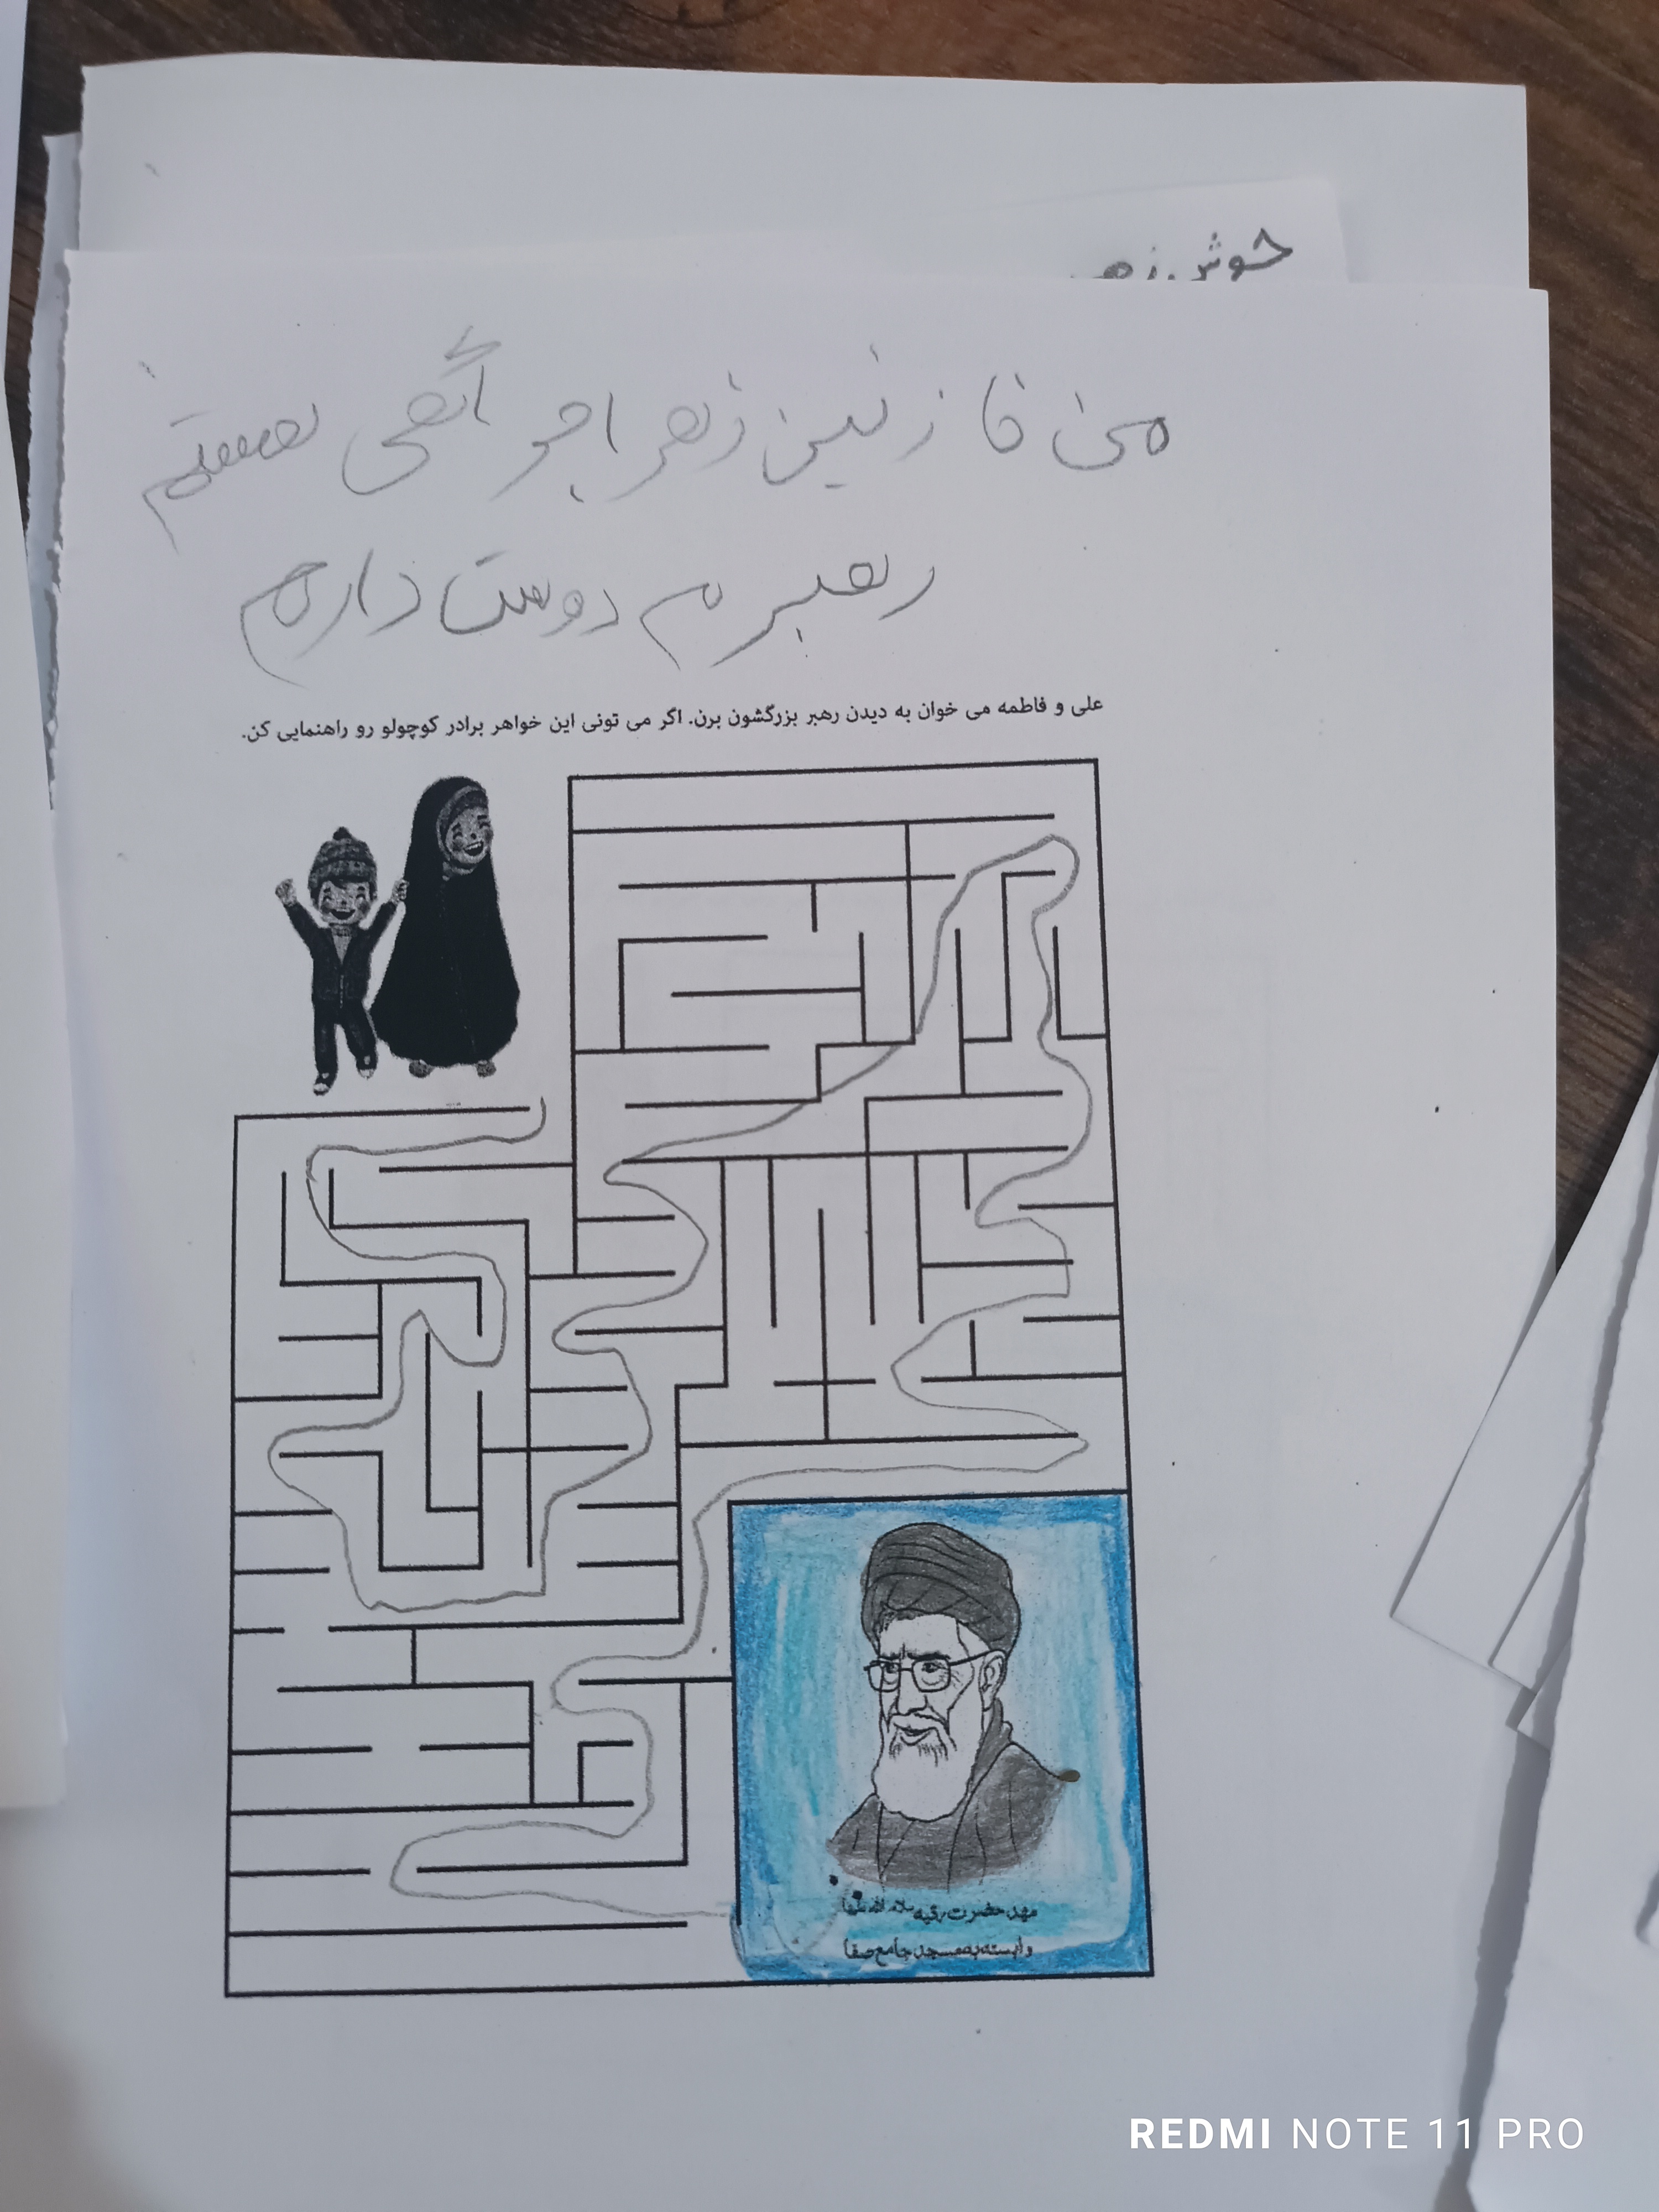 خوش زهر
من نازنین زهرا جو آگهی هستم
رهبرم دوست دارم
علی و فاطمه می خوان به دیدن رهبر بزرگشون برن. اگر می تونی این خواهر برادر کوچولو رو راهنمایی کن.
مهد حضرت رقیه سلام الله علیها
وابسته به مسجد جامع صفا
REDMI NOTE 11 PRO